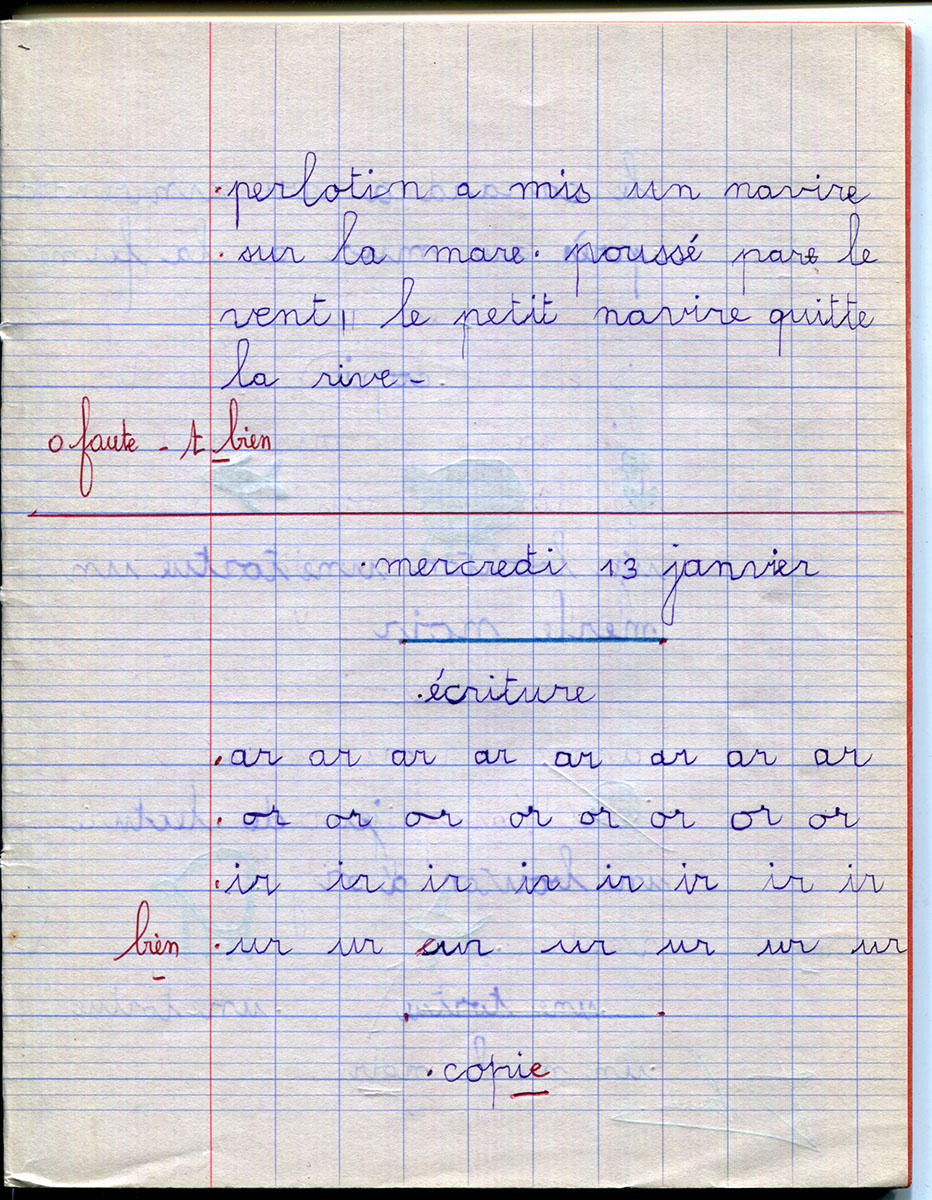 perlotin a mis un navire
sur la mare. poussé par le
vent, le petit navire quitte
la rive-
0 faute - t bien
mercredi 13 janvier
écriture
ar ar ar ar ar ar ar ar
or or or or or or or or
ir ir ir ir ir ir ir ir
bien ur ur ur ur ur ur ur
copie